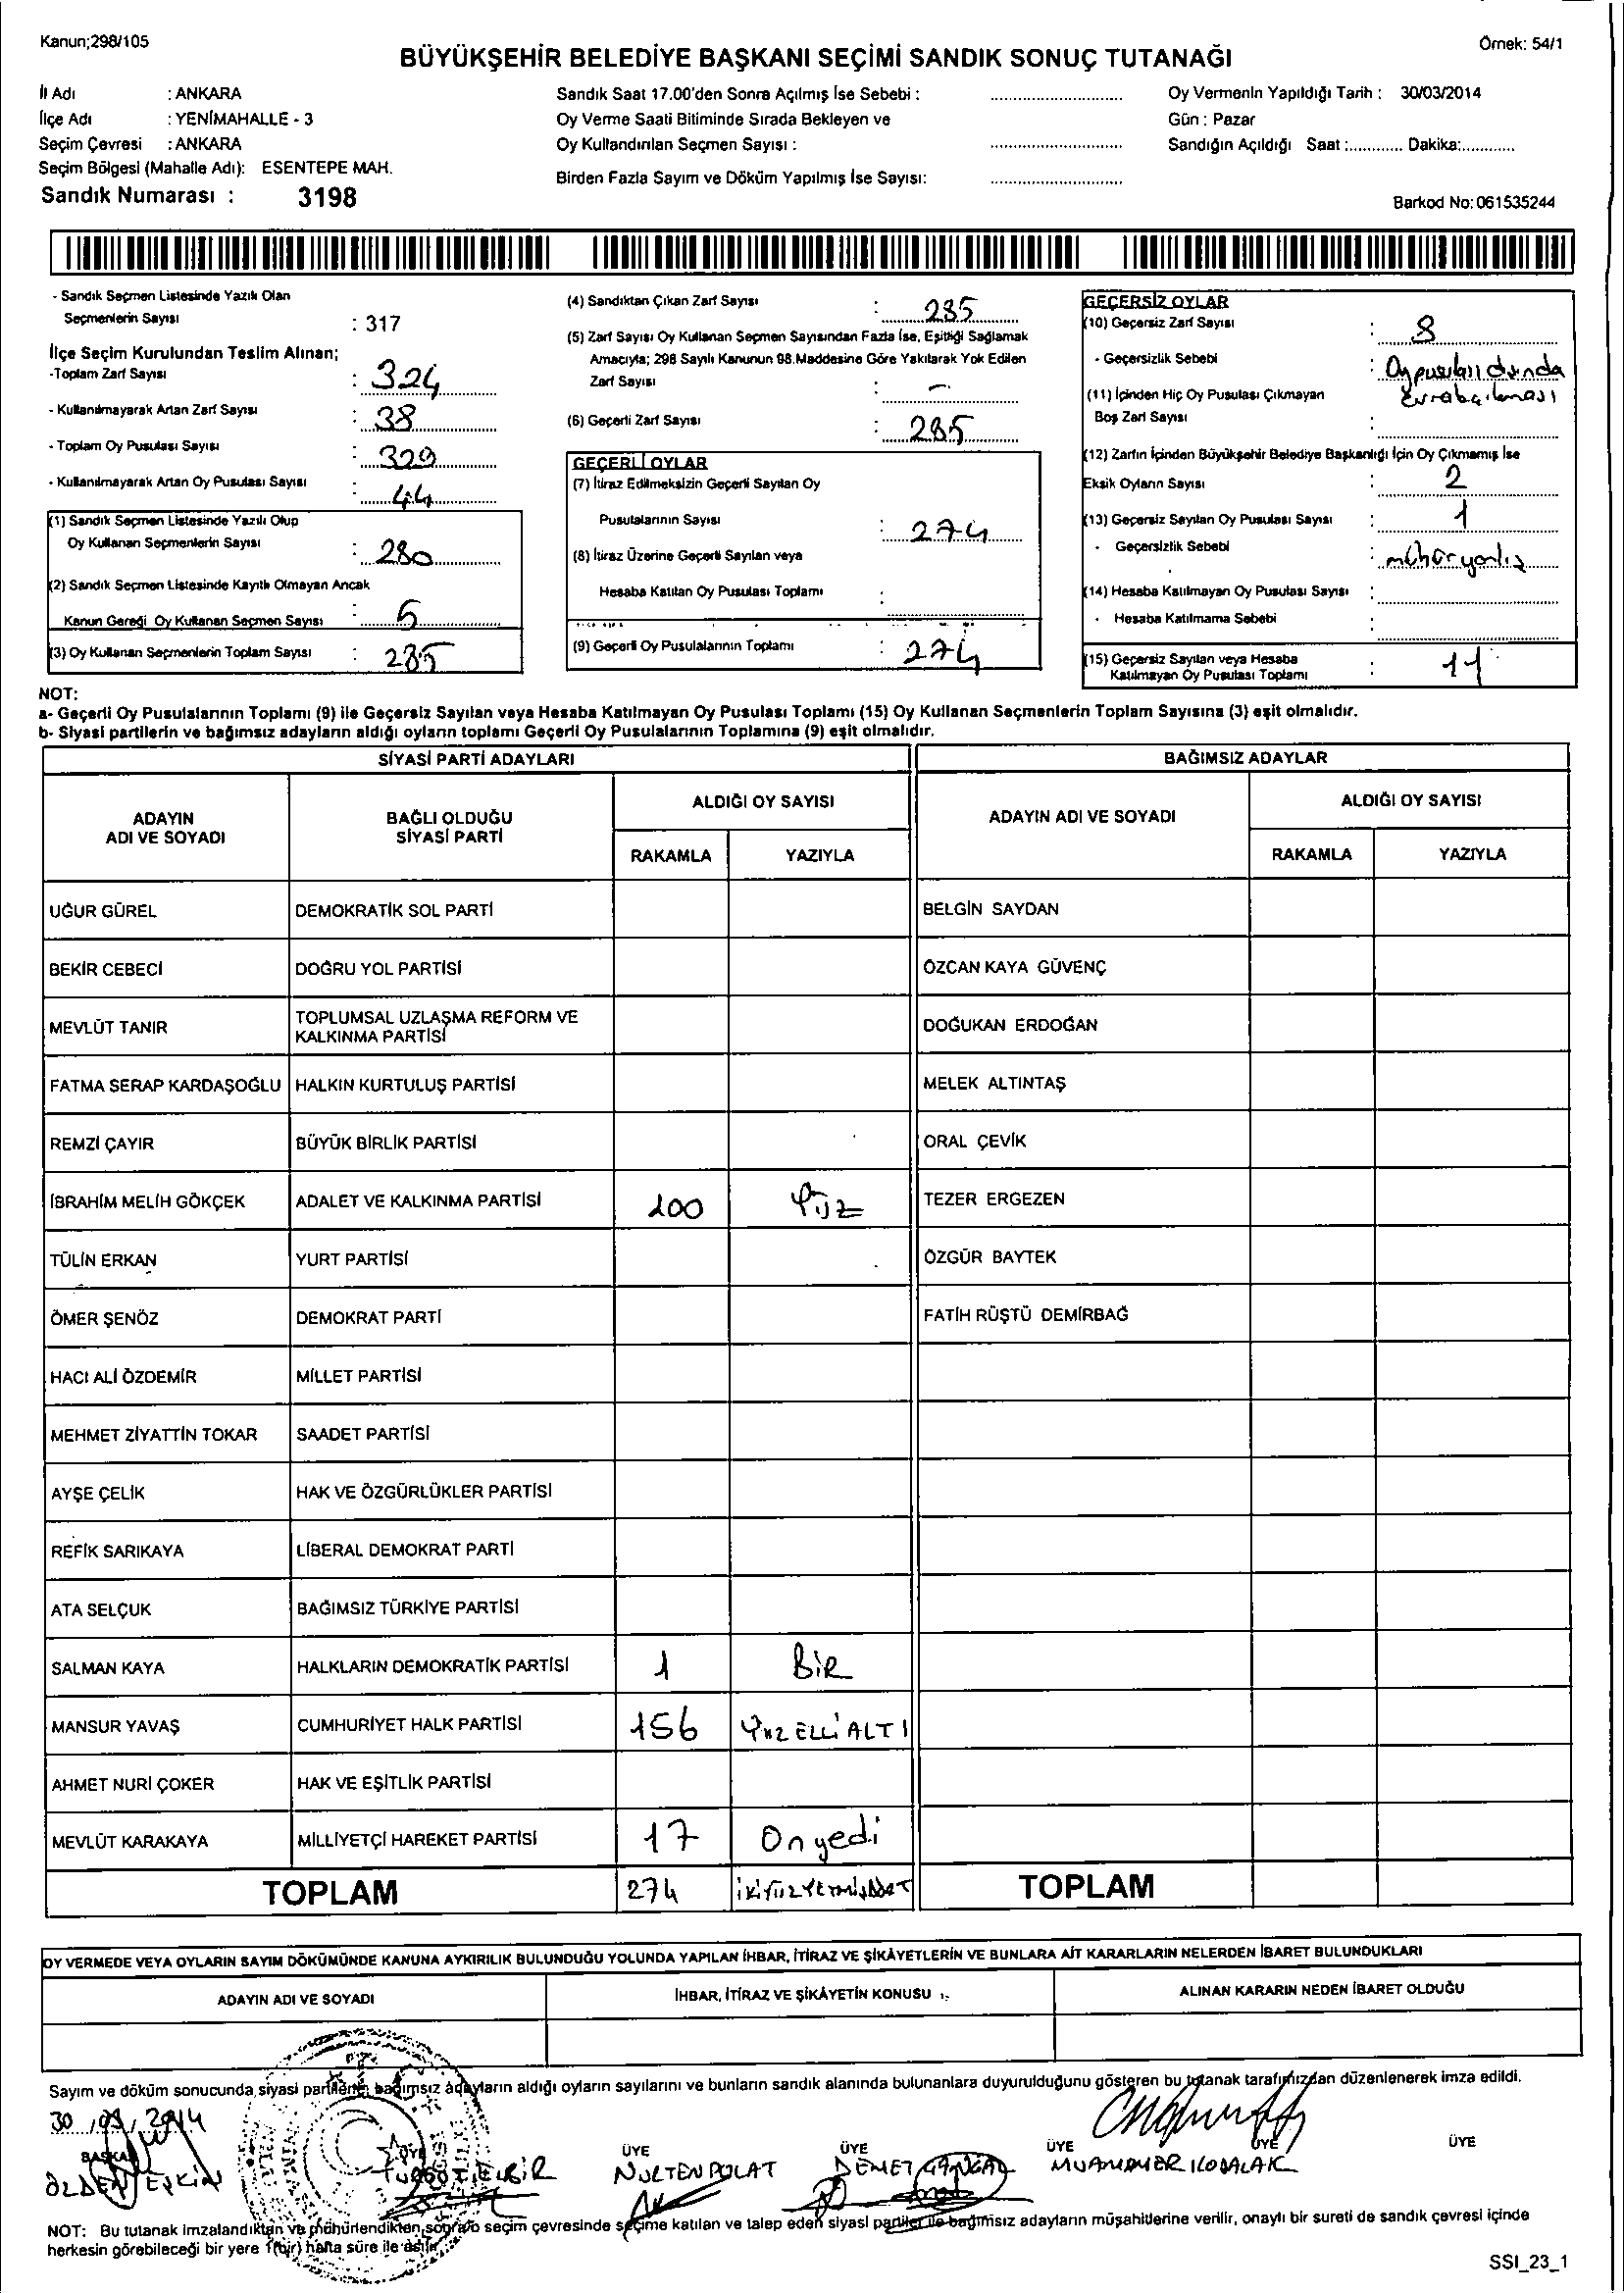 Kanun;298/105
Örnek: 54/1
BÜYÜKŞEHİR BELEDİYE BAŞKANI SEÇİMİ SANDIK SONUÇ TUTANAĞI
İl Adı : ANKARA
İlçe Adı : YENİMAHALLE - 3
Seçim Çevresi : ANKARA
Seçim Bölgesi (Mahalle Adı): ESENTEPE MAH.
Sandık Numarası : 3198
Sandık Saat 17.00'den Sonra Açılmış İse Sebebi :
Oy Verme Saati Bitiminde Sırada Bekleyen ve
Oy Kullandırılan Seçmen Sayısı :
Birden Fazla Sayım ve Döküm Yapılmış İse Sayısı:
Oy Vermenin Yapıldığı Tarih : 30/03/2014
Gün : Pazar
Sandığın Açıldığı Saat :............ Dakika:............
Barkod No: 061535244
- Sandık Seçmen Listesinde Yazılı Olan
Seçmenlerin Sayısı : 317
İlçe Seçim Kurulundan Teslim Alınan;
-Toplam Zarf Sayısı : 324
- Kullanılmayarak Artan Zarf Sayısı : 38
- Toplam Oy Pusulası Sayısı : 329
- Kullanılmayarak Artan Oy Pusulası Sayısı : 44
(1) Sandık Seçmen Listesinde Yazılı Olup
Oy Kullanan Seçmenlerin Sayısı : 280
(2) Sandık Seçmen Listesinde Kayıtlı Olmayan Ancak
Kanun Gereği Oy Kullanan Seçmen Sayısı : 5
(3) Oy Kullanan Seçmenlerin Toplam Sayısı : 285
(4) Sandıktan Çıkan Zarf Sayısı : 285
(5) Zarf Sayısı Oy Kullanan Seçmen Sayısından Fazla İse, Eşitliği Sağlamak
Amacıyla; 298 Sayılı Kanunun 98.Maddesine Göre Yakılarak Yok Edilen
Zarf Sayısı : -
(6) Geçerli Zarf Sayısı : 285
GEÇERLİ OYLAR
(7) İtiraz Edilmeksizin Geçerli Sayılan Oy
Pusulalarının Sayısı : 274
(8) İtiraz Üzerine Geçerli Sayılan veya
Hesaba Katılan Oy Pusulası Toplamı :
(9) Geçerli Oy Pusulalarının Toplamı : 274
GEÇERSİZ OYLAR
(10) Geçersiz Zarf Sayısı : 8
- Geçersizlik Sebebi : Oy pusulası dışında
(11) İçinden Hiç Oy Pusulası Çıkmayan
Boş Zarf Sayısı :
(12) Zarfın İçinden Büyükşehir Belediye Başkanlığı İçin Oy Çıkmamış İse
Eksik Oyların Sayısı : 2
(13) Geçersiz Sayılan Oy Pusulası Sayısı : 1
- Geçersizlik Sebebi :
(14) Hesaba Katılmayan Oy Pusulası Sayısı :
- Hesaba Katılmama Sebebi :
(15) Geçersiz Sayılan veya Hesaba
Katılmayan Oy Pusulası Toplamı : 11
NOT:
a- Geçerli Oy Pusulalarının Toplamı (9) ile Geçersiz Sayılan veya Hesaba Katılmayan Oy Pusulası Toplamı (15) Oy Kullanan Seçmenlerin Toplam Sayısına (3) eşit olmalıdır.
b- Siyasi partilerin ve bağımsız adayların aldığı oyların toplamı Geçerli Oy Pusulalarının Toplamına (9) eşit olmalıdır.
SİYASİ PARTİ ADAYLARI
BAĞIMSIZ ADAYLAR
ADAYIN ADI VE SOYADI
BAĞLI OLDUĞU SİYASİ PARTİ
ALDIĞI OY SAYISI
RAKAMLA YAZIYLA
ADAYIN ADI VE SOYADI
ALDIĞI OY SAYISI
RAKAMLA YAZIYLA
UĞUR GÜREL DEMOKRATİK SOL PARTİ BELGİN SAYDAN
BEKİR CEBECİ DOĞRU YOL PARTİSİ ÖZCAN KAYA GÜVENÇ
MEVLÜT TANIR TOPLUMSAL UZLAŞMA REFORM VE KALKINMA PARTİSİ DOĞUKAN ERDOĞAN
FATMA SERAP KARDAŞOĞLU HALKIN KURTULUŞ PARTİSİ MELEK ALTINTAŞ
REMZİ ÇAYIR BÜYÜK BİRLİK PARTİSİ ORAL ÇEVİK
İBRAHİM MELİH GÖKÇEK ADALET VE KALKINMA PARTİSİ 100 Yüz TEZER ERGEZEN
TÜLİN ERKAN YURT PARTİSİ ÖZGÜR BAYTEK
ÖMER ŞENÖZ DEMOKRAT PARTİ FATİH RÜŞTÜ DEMİRBAĞ
HACI ALİ ÖZDEMİR MİLLET PARTİSİ
MEHMET ZİYATTİN TOKAR SAADET PARTİSİ
AYŞE ÇELİK HAK VE ÖZGÜRLÜKLER PARTİSİ
REFİK SARIKAYA LİBERAL DEMOKRAT PARTİ
ATA SELÇUK BAĞIMSIZ TÜRKİYE PARTİSİ
SALMAN KAYA HALKLARIN DEMOKRATİK PARTİSİ 1 BİR
MANSUR YAVAŞ CUMHURİYET HALK PARTİSİ 156 YÜZ ELLİ ALTI
AHMET NURİ ÇOKER HAK VE EŞİTLİK PARTİSİ
MEVLÜT KARAKAYA MİLLİYETÇİ HAREKET PARTİSİ 17 Onyedi
TOPLAM 274 TOPLAM
OY VERMEDE VEYA OYLARIN SAYIM DÖKÜMÜNDE KANUNA AYKIRILIK BULUNDUĞU YOLUNDA YAPILAN İHBAR, İTİRAZ VE ŞİKÂYETLERİN VE BUNLARA AİT KARARLARIN NELERDEN İBARET BULUNDUKLARI
ADAYIN ADI VE SOYADI İHBAR, İTİRAZ VE ŞİKÂYETİN KONUSU ALINAN KARARIN NEDEN İBARET OLDUĞU
Sayım ve döküm sonucunda siyasi partilerin bağımsız adayların aldığı oyların sayılarını ve bunların sandık alanında bulunanlara duyurulduğunu gösteren bu tutanak tarafımızdan düzenlenerek imza edildi.
30 / 03 / 2014
BAŞKAN ÜYE ÜYE ÜYE ÜYE ÜYE ÜYE
NURTEN POLAT DEMET MUAMMER
NOT: Bu tutanak imzalandıktan ve mühürlendikten sonra seçim çevresinde seçime katılan ve talep eden siyasi partiler ile bağımsız adayların müşahitlerine verilir, onaylı bir sureti de sandık çevresi içinde
herkesin görebileceği bir yere 1(bir) hafta süre ile asılır.
SSI_23_1